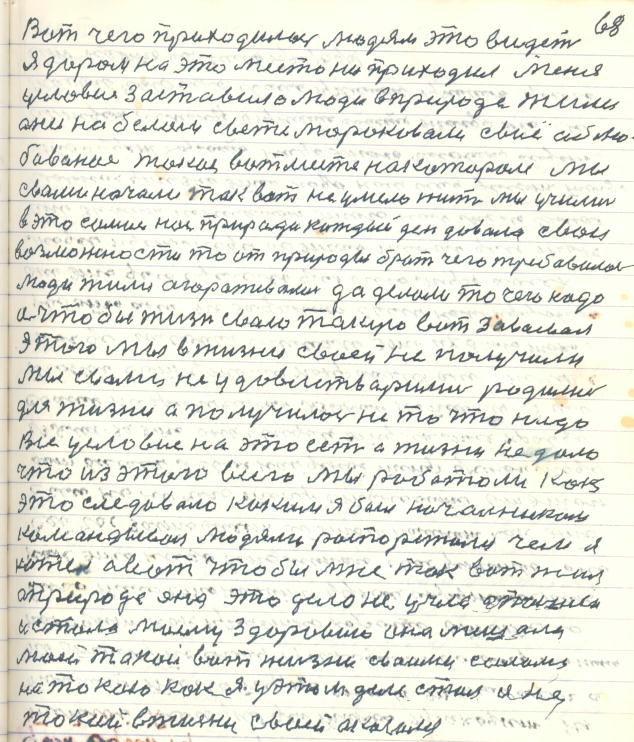 68
Вот чего приходилось людям это видеть
Я даром на это место не приходил Меня
условие заставило люди в природе жили
они на белом свети мороковали своё облю-
баваное токое вот мести на котором мы
свами начали так вот не умело жить мы учили
в это самое нас природа каждый ден довала свои
возможности то от природы брат чего требавалос
люди жили огораживали да делали то чего надо
а чтобы жизн свою такую вот
Этого мы в жизни своей не получили
мы свами не удовлитварили родилис
для жизни а получилос не то что нидо
Все условие на это есть а жизни не дало
что из этого всего мы работоли Как
это следовало каким я был начальником
командывал людями чем я
хотел а вот чтобы мне так вот жил
природе яна это дело не учла
и стала моему Здоровию она мишала
моей такой вот жизни своими силами
на токою как я у этом деле стал я не
токой в жизни своей